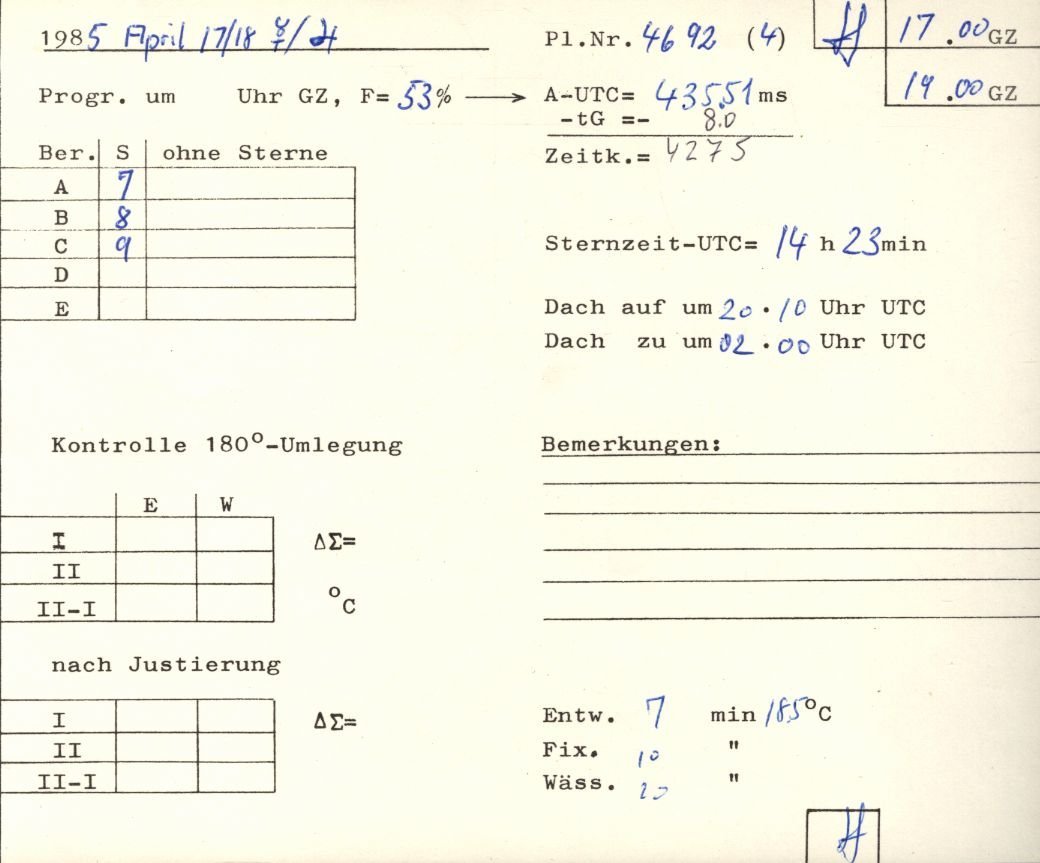 1985 April 17/18 ☿/♃
Pl.Nr. 4692 (4)
17.00 GZ
19.00 GZ
Progr. um Uhr GZ, F= 53% → A-UTC= 435.51 ms
-tG =- 8.0
Zeitk.= 4275
Ber. S ohne Sterne
A 7
B 8
C 9
D
E
Sternzeit-UTC= 14 h 23 min
Dach auf um 20.10 Uhr UTC
Dach zu um 02.00 Uhr UTC
Kontrolle 180°-Umlegung
E W
I ΔΣ=
II
II-I °C
Bemerkungen:
nach Justierung
I ΔΣ=
II
II-I
Entw. 7 min 18.5°C
Fix. 10 "
Wäss. 20 "